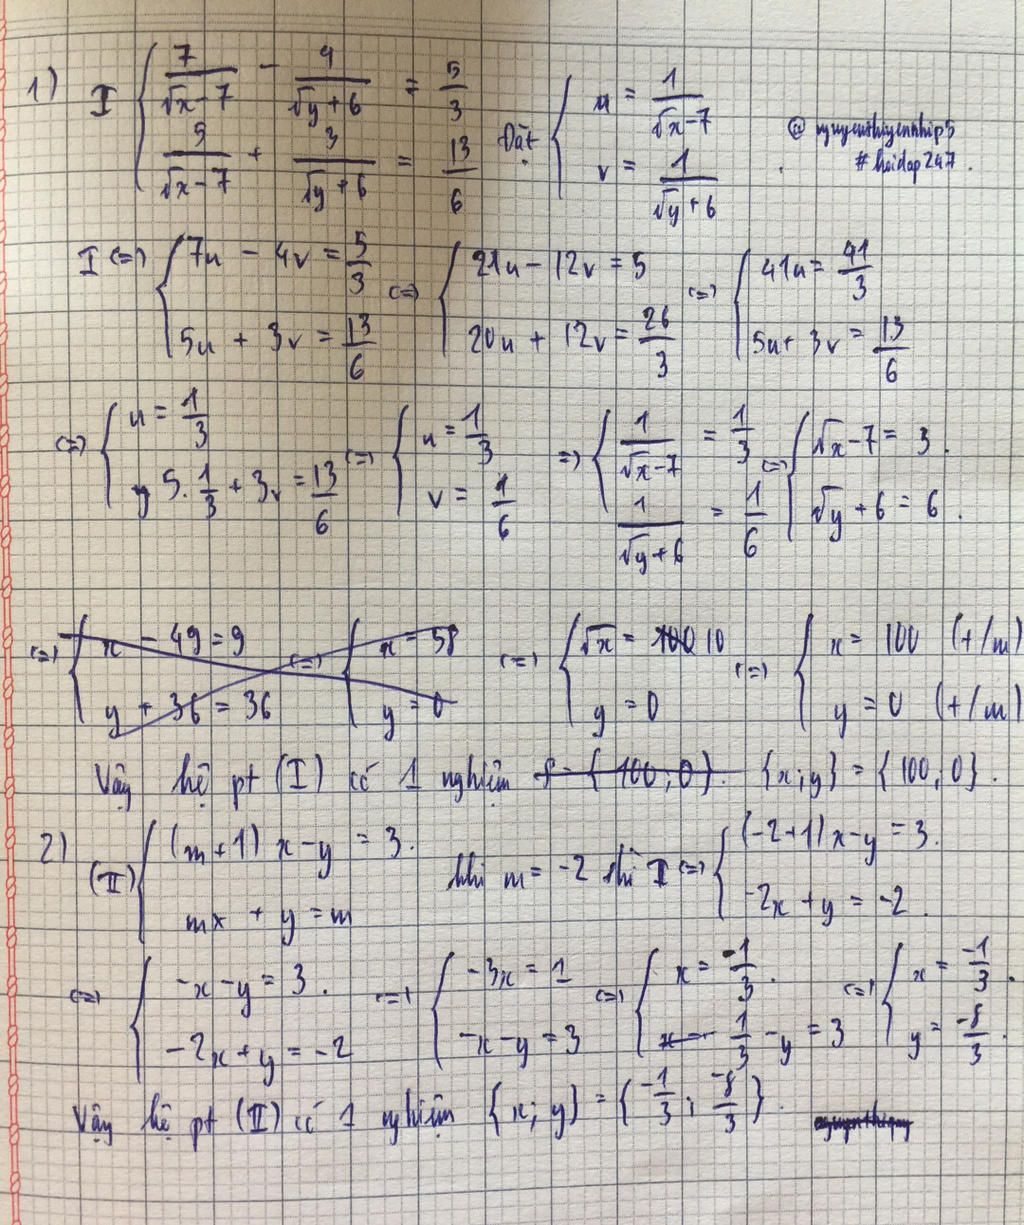 1) I { 7/(√x - 7) - 4/(√y + 6) = 5/3 ; 5/(√x - 7) + 3/(√y + 6) = 13/6 Đặt { u = 1/(√x - 7) ; v = 1/(√y + 6)
#hoidap247.
I <=> { 7u - 4v = 5/3 ; 5u + 3v = 13/6 <=> { 21u - 12v = 5 ; 20u + 12v = 26/3 <=> { 41u = 41/3 ; 5u + 3v = 13/6
<=> { u = 1/3 ; 5.1/3 + 3v = 13/6 <=> { u = 1/3 ; v = 1/6 => { 1/(√x - 7) = 1/3 ; 1/(√y + 6) = 1/6 <=> { √x - 7 = 3. ; √y + 6 = 6.
<=> { x - 49 = 9 ; y + 36 = 36 <=> { x = 58 ; y = 0 <=> { √x = 10 ; y = 0 <=> { x = 100 (t/m) ; y = 0 (t/m)
Vậy hệ pt (I) có 1 nghiệm {x; y} = {100; 0}.
2) (II) { (m+1) x - y = 3. ; mx + y = m khi m = -2 thì I <=> { (-2+1) x - y = 3. ; -2x + y = -2.
<=> { -x - y = 3. ; -2x + y = -2 <=> { -3x = 1 ; -x - y = 3 <=> { x = -1/3. ; 1/3 - y = 3 <=> { x = -1/3. ; y = -8/3.
Vậy hệ pt (II) có 1 nghiệm {x; y} = {-1/3; -8/3}.